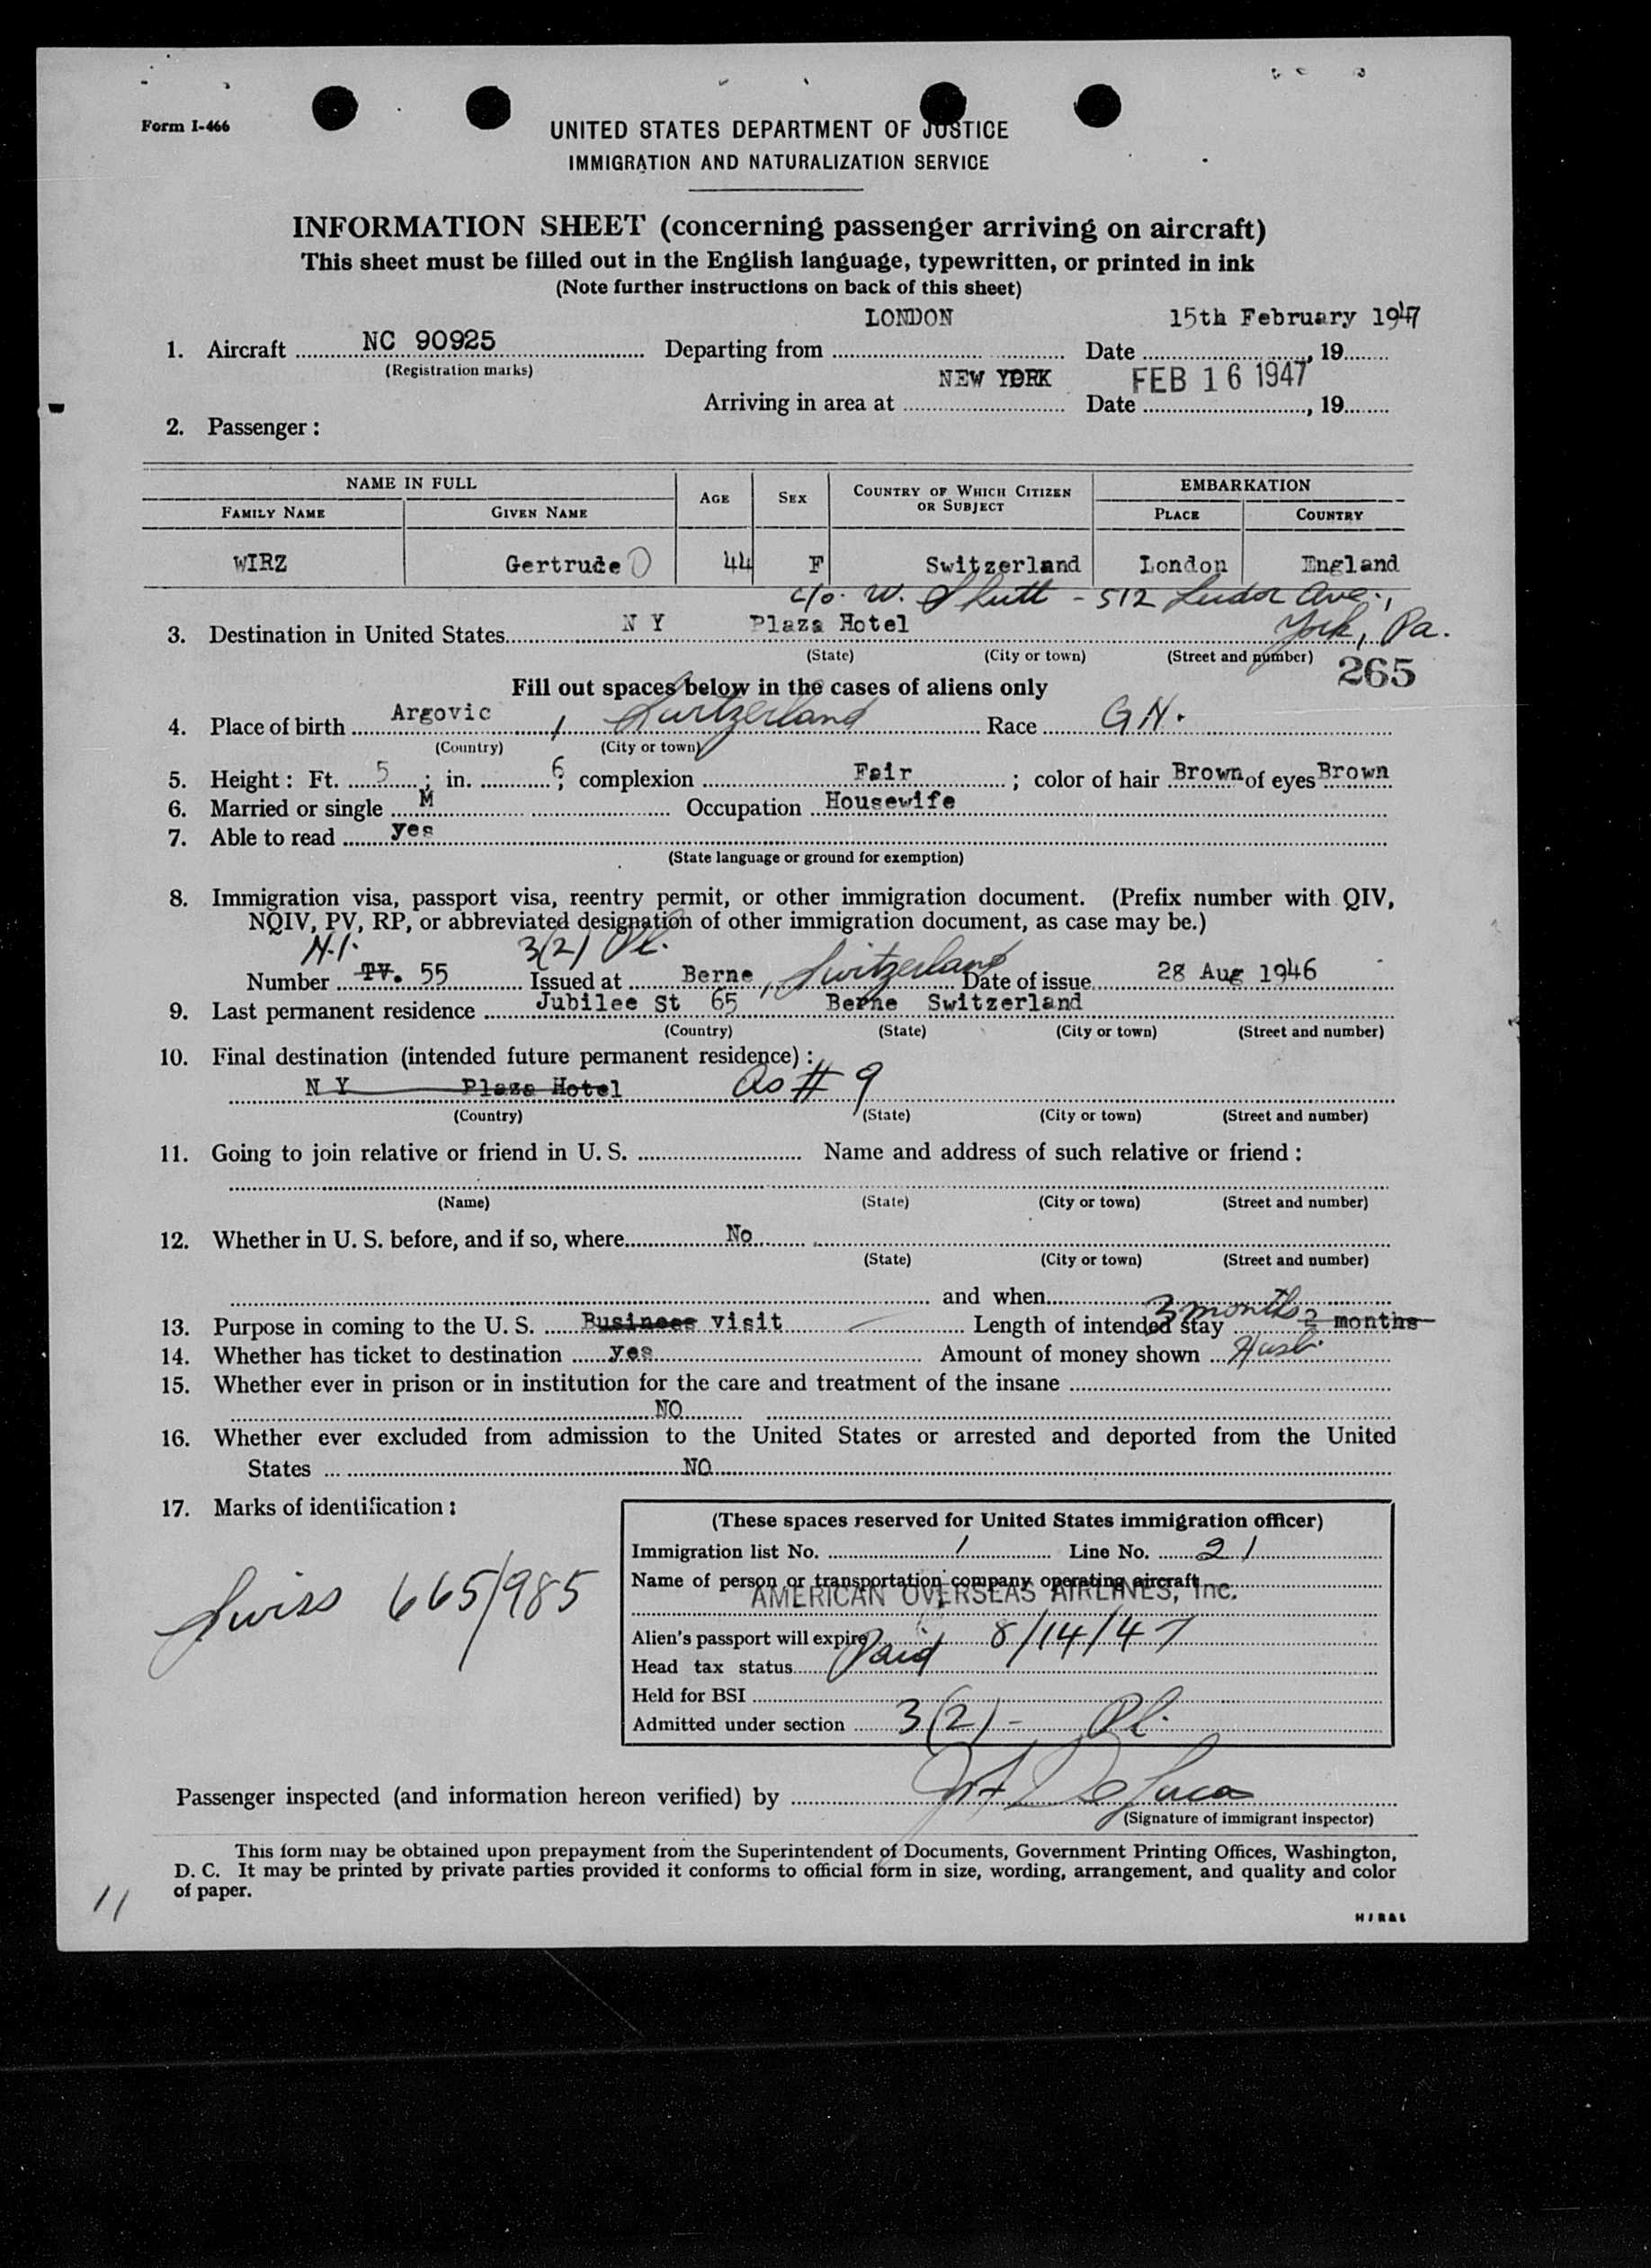 Form I-466
UNITED STATES DEPARTMENT OF JUSTICE
IMMIGRATION AND NATURALIZATION SERVICE
INFORMATION SHEET (concerning passenger arriving on aircraft)
This sheet must be filled out in the English language, typewritten, or printed in ink
(Note further instructions on back of this sheet)
LONDON 15th February 1947
1. Aircraft NC 90925 Departing from Date , 19
(Registration marks)
NEW YORK FEB 16 1947
Arriving in area at Date , 19
2. Passenger :
NAME IN FULL AGE SEX COUNTRY OF WHICH CITIZEN OR SUBJECT EMBARKATION
FAMILY NAME GIVEN NAME PLACE COUNTRY
WIRZ Gertrude 44 F Switzerland London England
c/o. W. - 512 Ave.,
3. Destination in United States N Y Plaza Hotel York, Pa.
(State) (City or town) (Street and number)
265
Fill out spaces below in the cases of aliens only
4. Place of birth Argovic / Switzerland Race G.N.
(Country) (City or town)
5. Height : Ft. 5 ; in. 6 ; complexion Fair ; color of hair Brown of eyes Brown
6. Married or single M Occupation Housewife
7. Able to read yes
(State language or ground for exemption)
8. Immigration visa, passport visa, reentry permit, or other immigration document. (Prefix number with QIV,
NQIV, PV, RP, or abbreviated designation of other immigration document, as case may be.)
N.I. 3(2) Pl.
Number TV. 55 Issued at Berne, Switzerland Date of issue 28 Aug 1946
9. Last permanent residence Jubilee St 65 Berne Switzerland
(Country) (State) (City or town) (Street and number)
10. Final destination (intended future permanent residence) :
N Y Plaza Hotel as # 9
(Country) (State) (City or town) (Street and number)
11. Going to join relative or friend in U. S. Name and address of such relative or friend :
(Name) (State) (City or town) (Street and number)
12. Whether in U. S. before, and if so, where No
(State) (City or town) (Street and number)
and when
13. Purpose in coming to the U. S. Business visit Length of intended stay 3 months 2 months
14. Whether has ticket to destination yes Amount of money shown Husb.
15. Whether ever in prison or in institution for the care and treatment of the insane
NO
16. Whether ever excluded from admission to the United States or arrested and deported from the United
States NO
17. Marks of identification :
Swiss 665/985
(These spaces reserved for United States immigration officer)
Immigration list No. 1 Line No. 21
Name of person or transportation company operating aircraft
AMERICAN OVERSEAS AIRLINES, Inc.
Alien's passport will expire 8/14/47
Head tax status Paid
Held for BSI
Admitted under section 3(2) - Pl.
Passenger inspected (and information hereon verified) by
(Signature of immigrant inspector)
This form may be obtained upon prepayment from the Superintendent of Documents, Government Printing Offices, Washington,
D. C. It may be printed by private parties provided it conforms to official form in size, wording, arrangement, and quality and color
of paper.
11